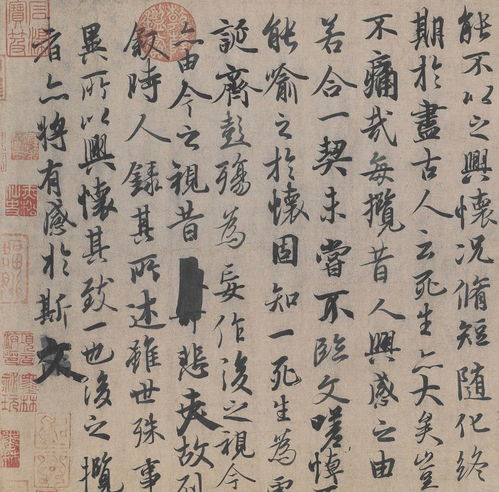 能不以之興懷況脩短隨化終
期於盡古人云死生亦大矣豈
不痛哉每攬昔人興感之由
若合一契未嘗不臨文嗟悼
能喻之於懷固知一死生為
誕齊彭殤為妄作後之視今
亦由今之視昔悲夫故列
敘時人錄其所述雖世殊事
異所以興懷其致一也後之攬
者亦將有感於斯文